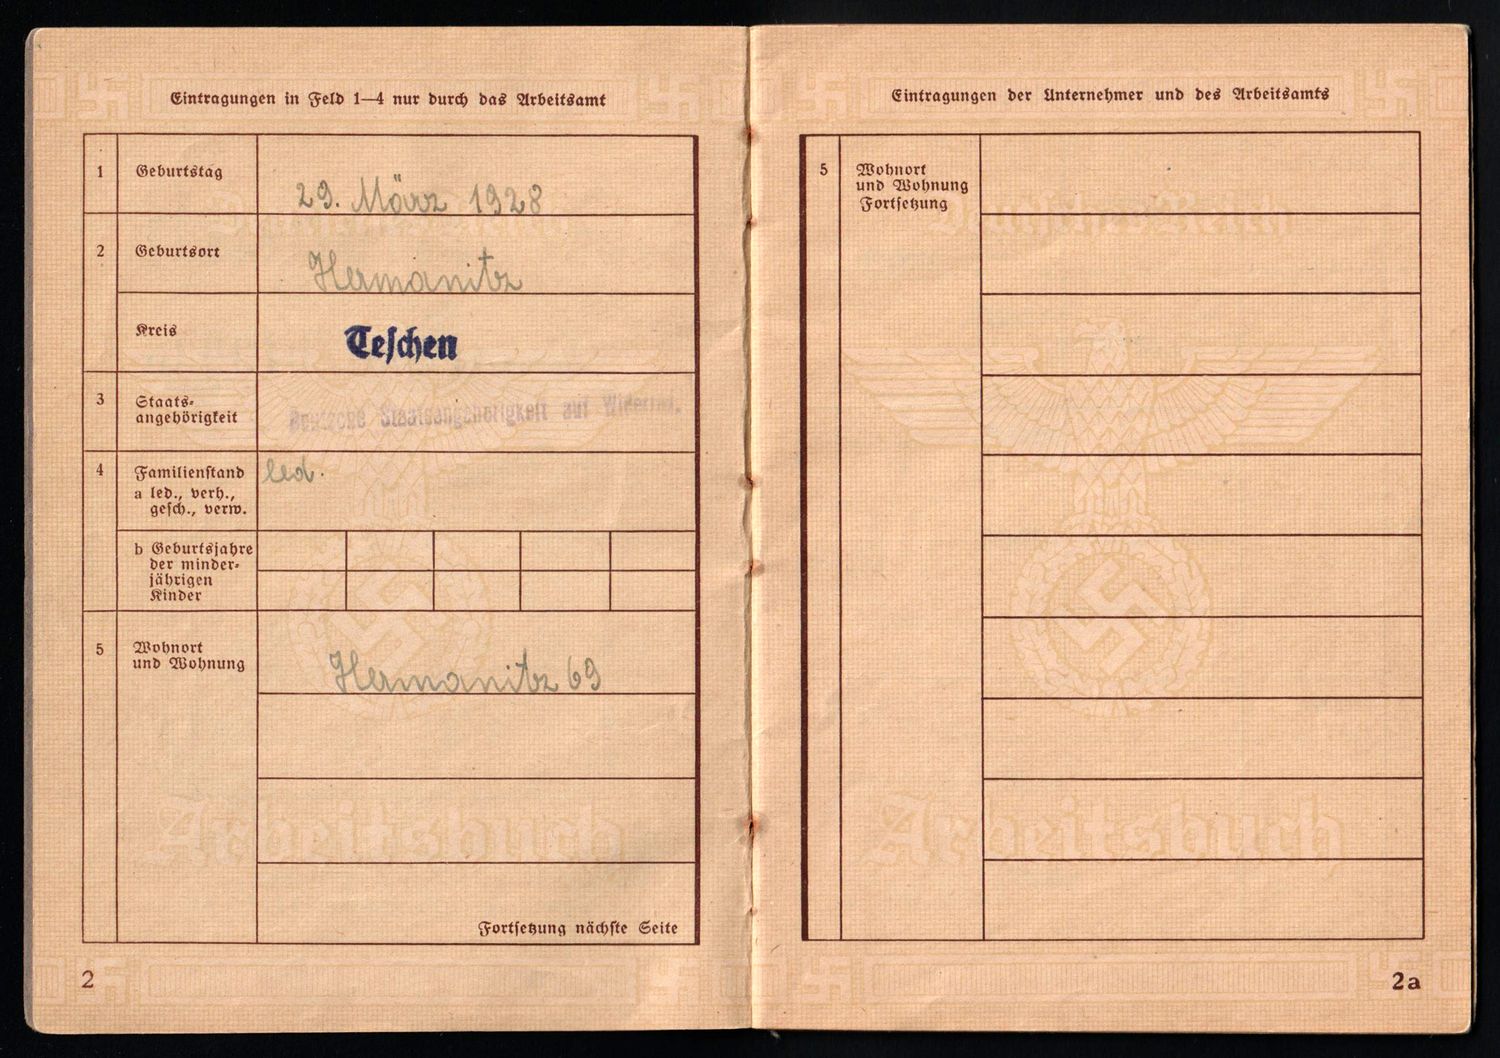 Eintragungen in Feld 1—4 nur durch das Arbeitsamt
1 Geburtstag 29. März 1928
2 Geburtsort Hermanitz
Kreis Teschen
3 Staats-
angehörigkeit Deutsche Staatsangehörigkeit auf Widerruf.
4 Familienstand led.
a led., verh.,
gesch., verw.
b Geburtsjahre
der minder-
jährigen
Kinder
5 Wohnort
und Wohnung Hermanitz 69
Fortsetzung nächste Seite
2
Deutsches Reich
Arbeitsbuch
Eintragungen der Unternehmer und des Arbeitsamts
5 Wohnort
und Wohnung
Fortsetzung
2a
Deutsches Reich
Arbeitsbuch